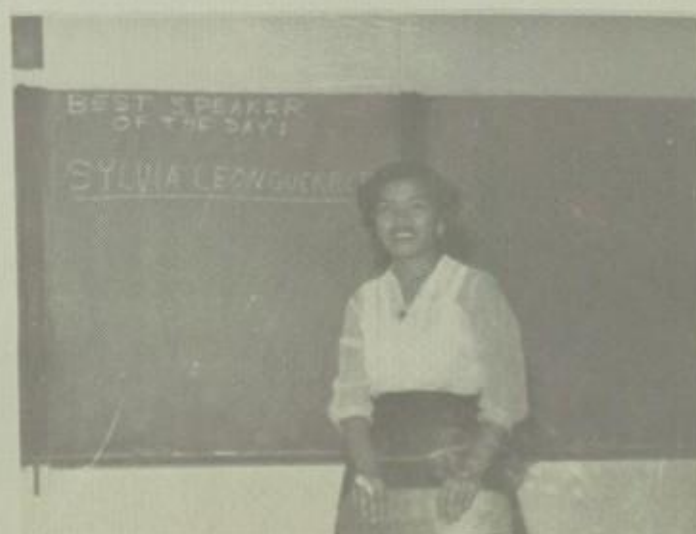 BEST SPEAKER
OF THE DAY:
SYLVIA LEONGUERRERO